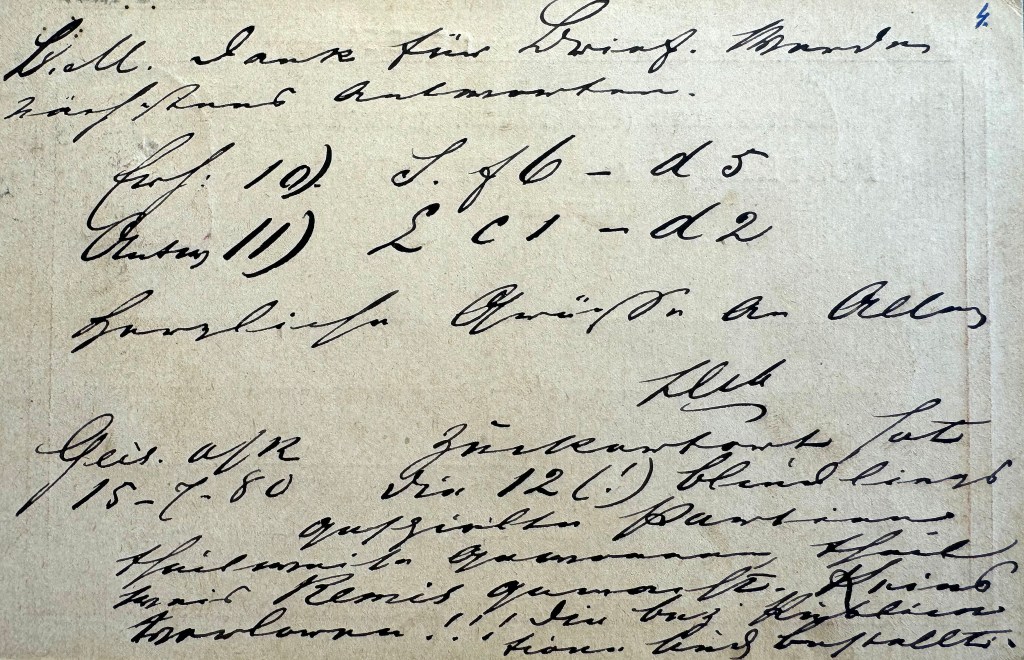 4.
L. M. Dank für Brief. Werde
nächstens antworten.
Erh: 10). S. f6 – d5
Antw 11) L c1 – d2
Herzliche Grüsse an Alle
Geis. a/R Zuckertort hat
15-7-80 die 12 (!) blindlings
gespielte Partieen
theilweise gewonnen, theil
weis Remis gemacht. Keine
verloren!!! Die bez
sind bestellt.